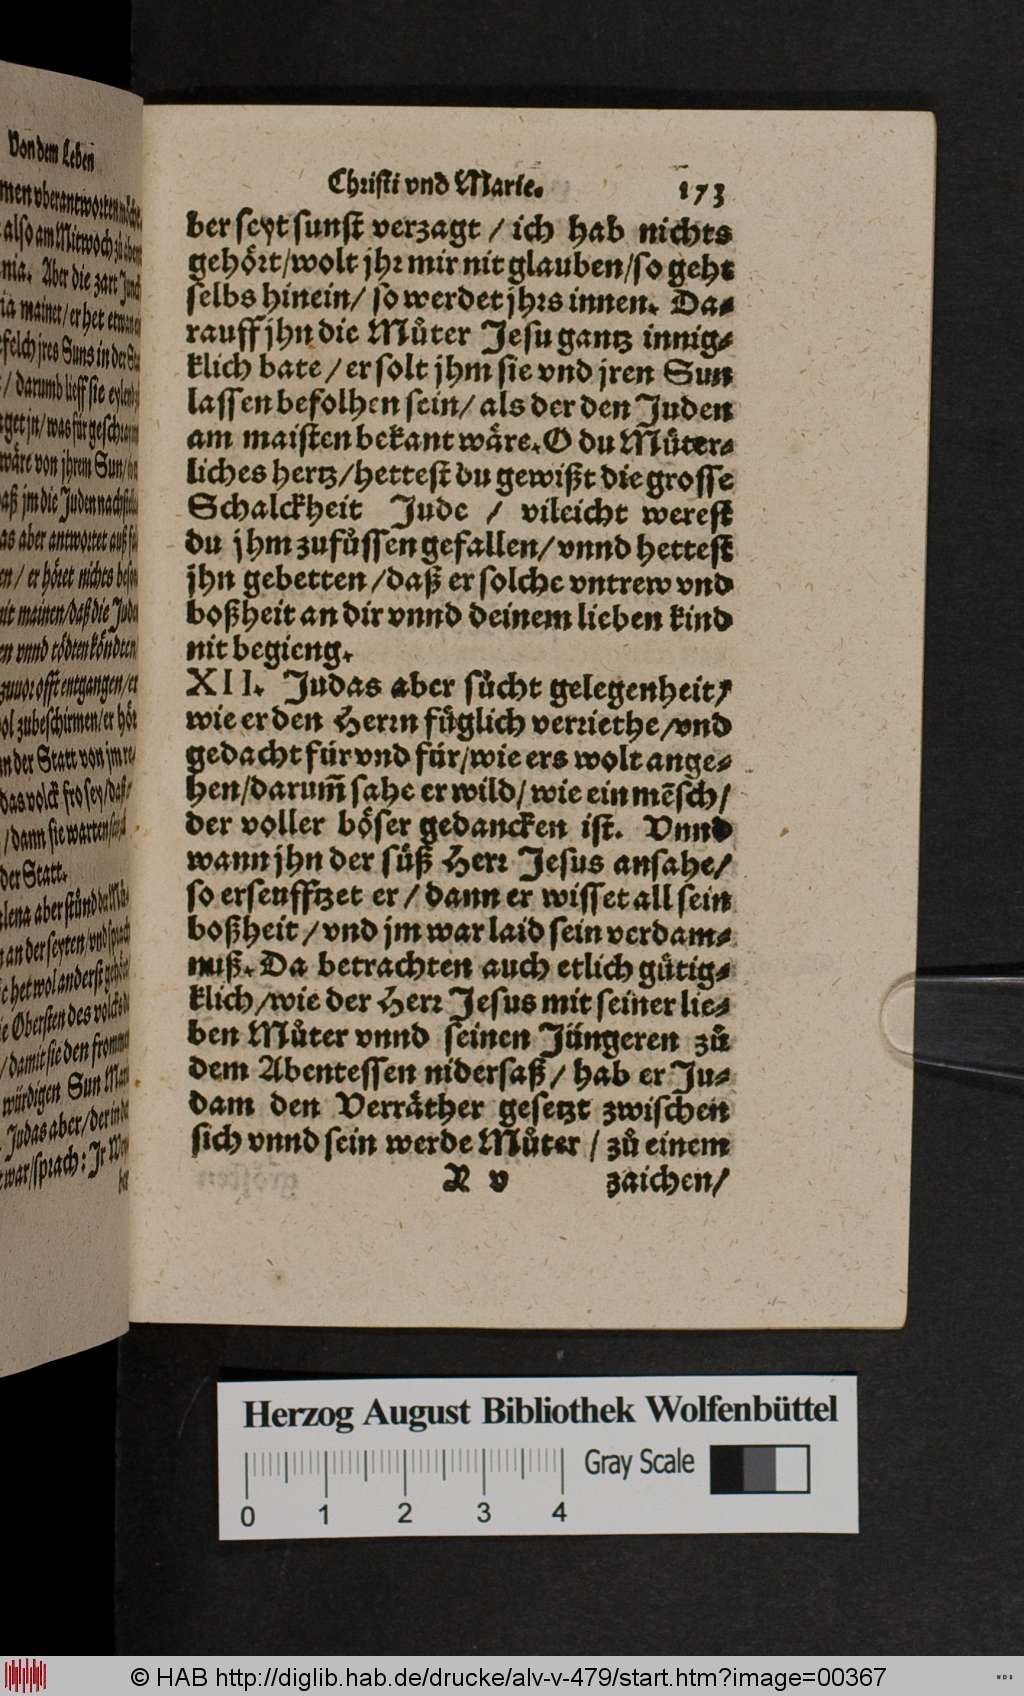 Von dem Leben
men vberantworten
also am Mitwoch zů
nia. Aber die zart
mainet/er het
jres Suns in der
/ darumb lieff sie
jn/was für
wäre von jhrem Sun/
jm die Juden
as aber antwortet auß
en/ er höret nichts
nit mainen/daß die
en vnnd tödten köndten
zuuor offt entgangen/er
zubeschirmen/er
in der Statt von jm
das volck fro sey/
/dann sie warten
der Statt.
lena aber stůnd
an der seyten/vnd sprach
het wol anderst
ie Obersten des volcks
/damit sie den frommen
würdigen Sun
Judas aber/der
war/sprach: Ir
Christi vnd Marie. 173
ber seyt sunst verzagt / ich hab nichts
gehört/wolt jhr mir nit glauben/so geht
selbs hinein/ so werdet jhrs innen. Da-
rauff jhn die Můter Jesu gantz innig-
klich bate / er solt jhm sie vnd jren Sun
lassen befolhen sein/ als der den Juden
am maisten bekant wäre. O du Můter-
liches hertz/hettest du gewißt die grosse
Schalckheit Jude / vileicht werest
du jhm zufůssen gefallen/vnnd hettest
jhn gebetten/daß er solche vntrew vnd
boßheit an dir vnnd deinem lieben kind
nit begieng.
XII. Judas aber sůcht gelegenheit/
wie er den Herrn fůglich verriethe/vnd
gedacht für vnd für/wie ers wolt ange-
hen/darum̄ sahe er wild/wie ein mēsch/
der voller böser gedancken ist. Vnnd
wann jhn der sůß Herr Jesus ansahe/
so erseufftzet er/ dann er wisset all sein
boßheit/vnd jm war laid sein verdam-
nuß. Da betrachten auch etlich gůtig-
klich/wie der Herr Jesus mit seiner lie-
ben Můter vnnd seinen Jüngeren zů
dem Abentessen nidersaß/ hab er Ju-
dam den Verräther gesetzt zwischen
sich vnnd sein werde Můter / zů einem
R v zaichen/
Herzog August Bibliothek Wolfenbüttel
Gray Scale
0 1 2 3 4
© HAB http://diglib.hab.de/drucke/alv-v-479/start.htm?image=00367